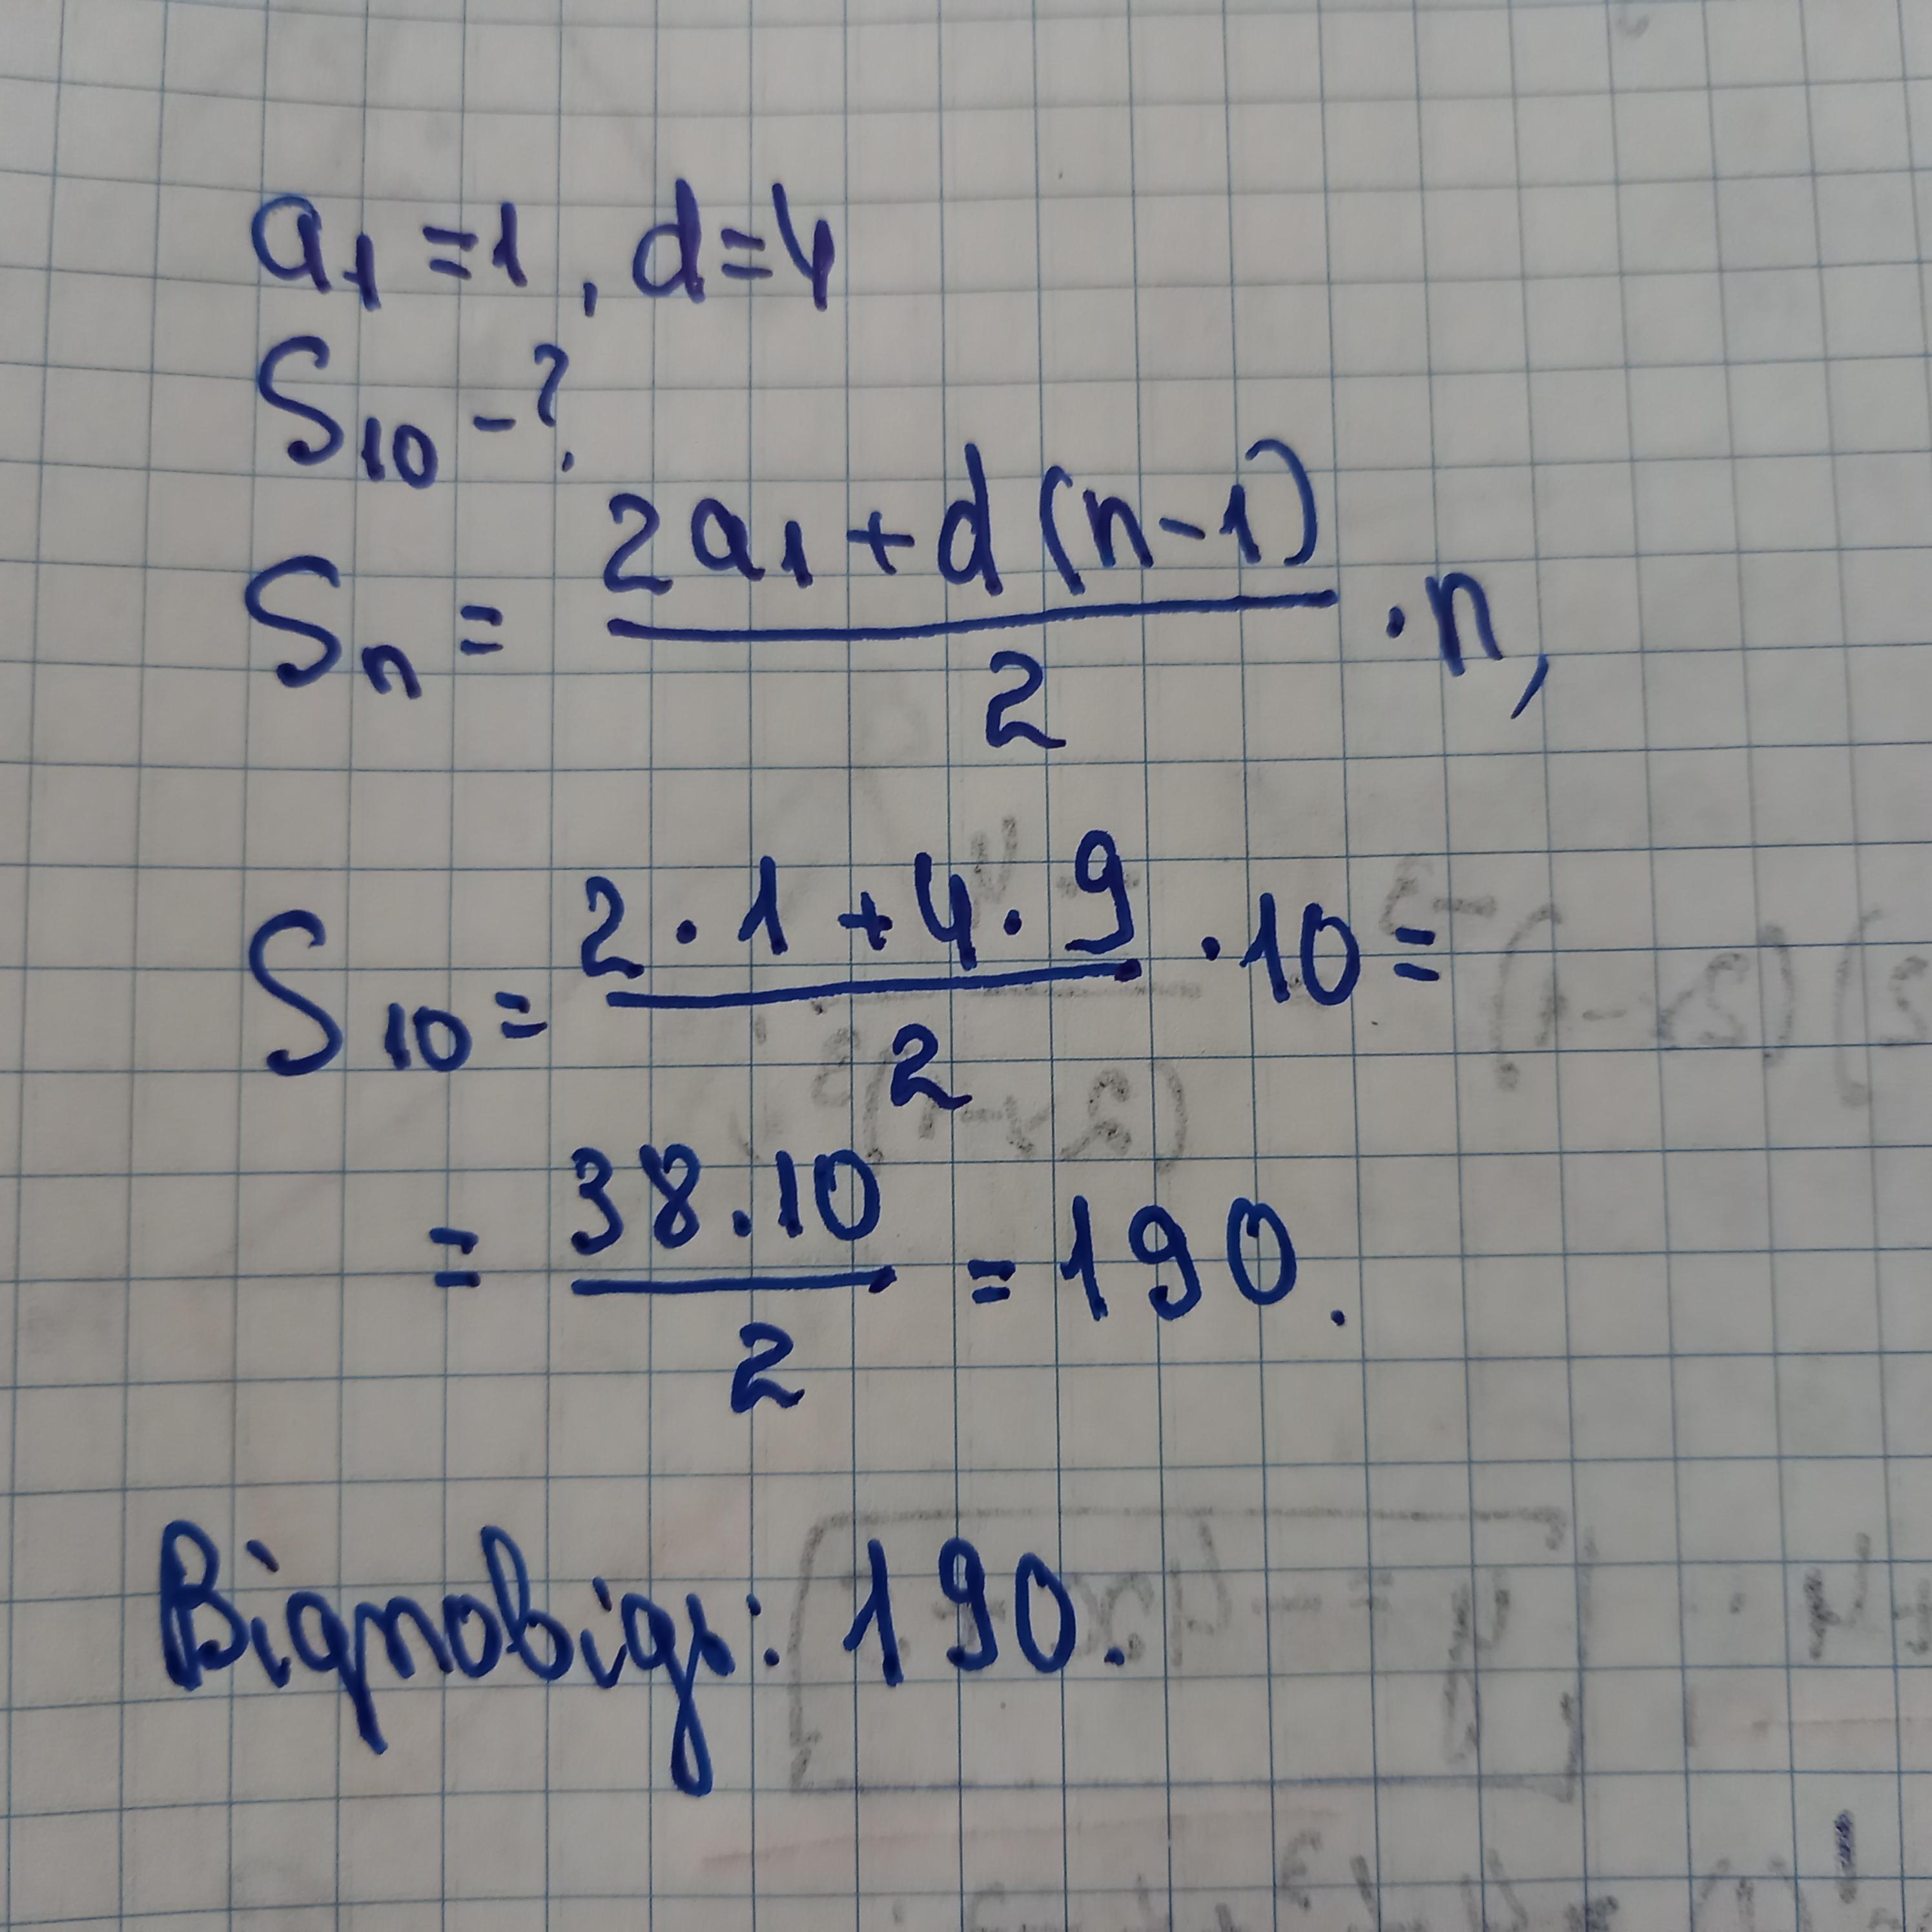 a₁ = 1, d = 4
S₁₀ - ?
Sₙ = (2a₁ + d(n-1))/2 · n,
S₁₀ = (2 · 1 + 4 · 9)/2 · 10 =
= (38 · 10)/2 = 190.
Відповідь: 190.